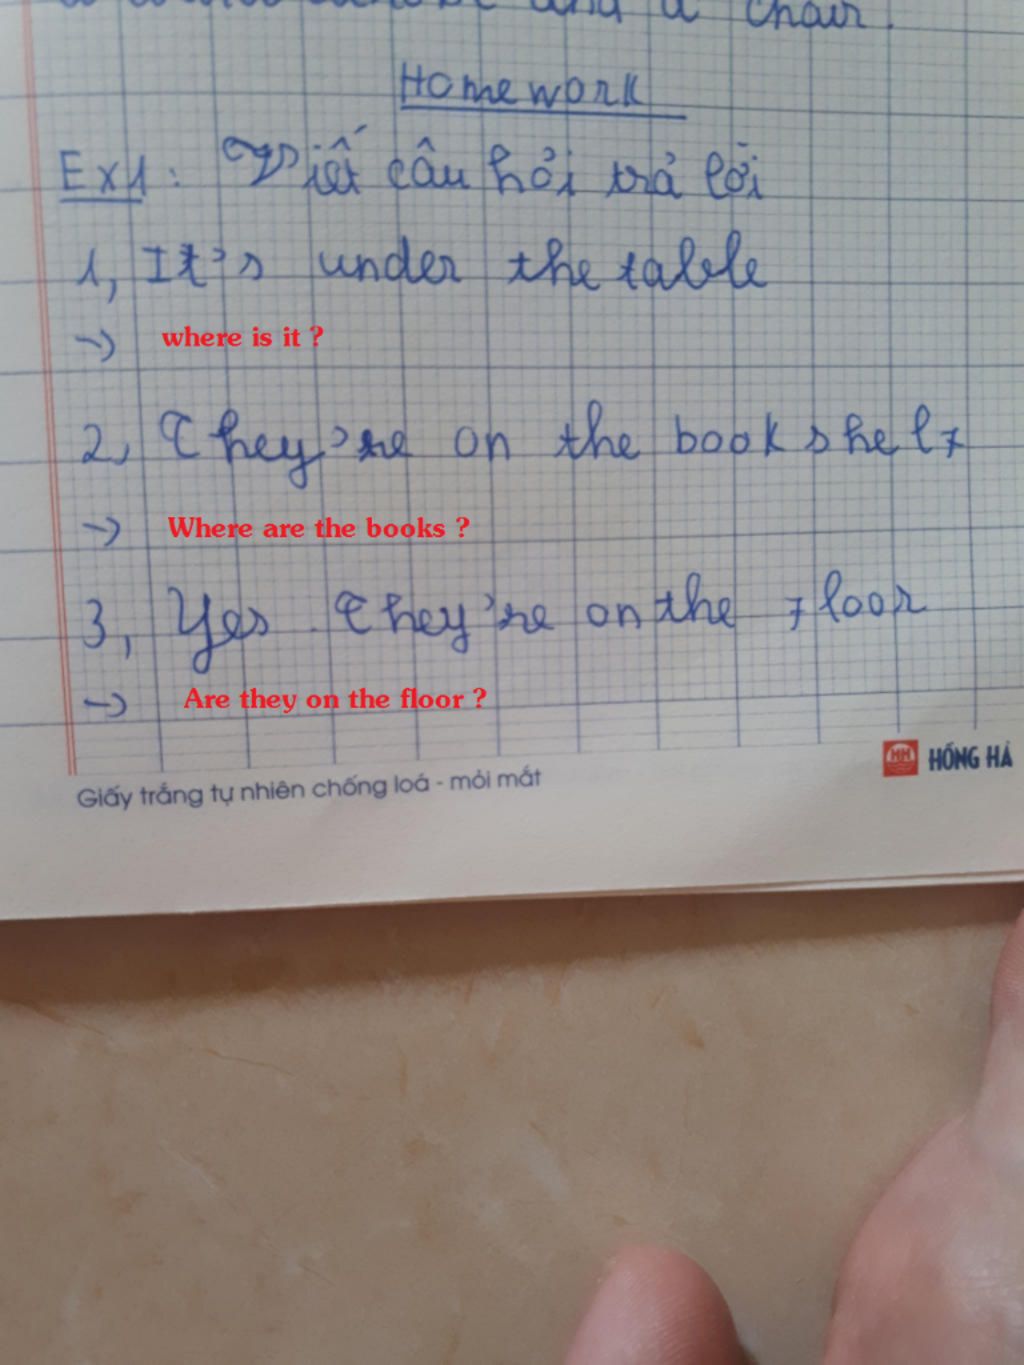 and a chair.
Homework
Ex1: Viết câu hỏi trả lời
1, It's under the table
→ where is it ?
2, They're on the bookshelf
→ Where are the books ?
3, Yes. They're on the floor
→ Are they on the floor ?
HỒNG HÀ
Giấy trắng tự nhiên chống loá - mỏi mắt